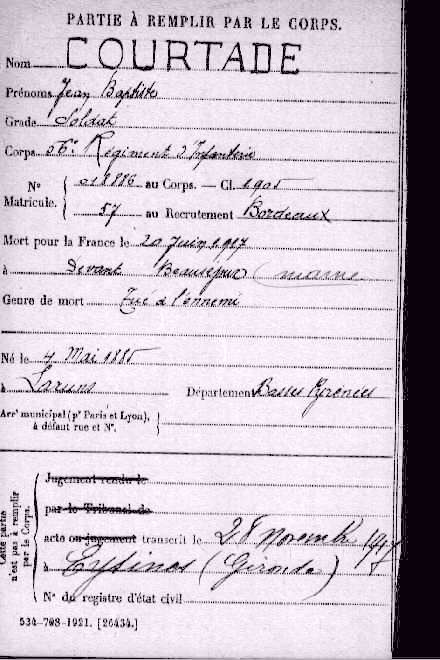 PARTIE À REMPLIR PAR LE CORPS.
Nom COURTADE
Prénoms Jean Baptiste
Grade Soldat
Corps 56e Régiment d'Infanterie
N° Matricule. 018886 au Corps. — Cl. 1905
57 au Recrutement Bordeaux
Mort pour la France le 20 Juin 1917
à Devant Beauséjour (marne
Genre de mort Tué à l'ennemi
Né le 4 Mai 1885
à Laruns Département Basses Pyrénées
Arrt municipal (pr Paris et Lyon),
à défaut rue et N°.
Cette partie
n'est pas à remplir
par le Corps.
Jugement rendu le
par le Tribunal de
acte ou jugement transcrit le 28 Novembre 1917
à Eysines (Gironde)
N° du registre d'état civil
534-708-1921. [26434.]